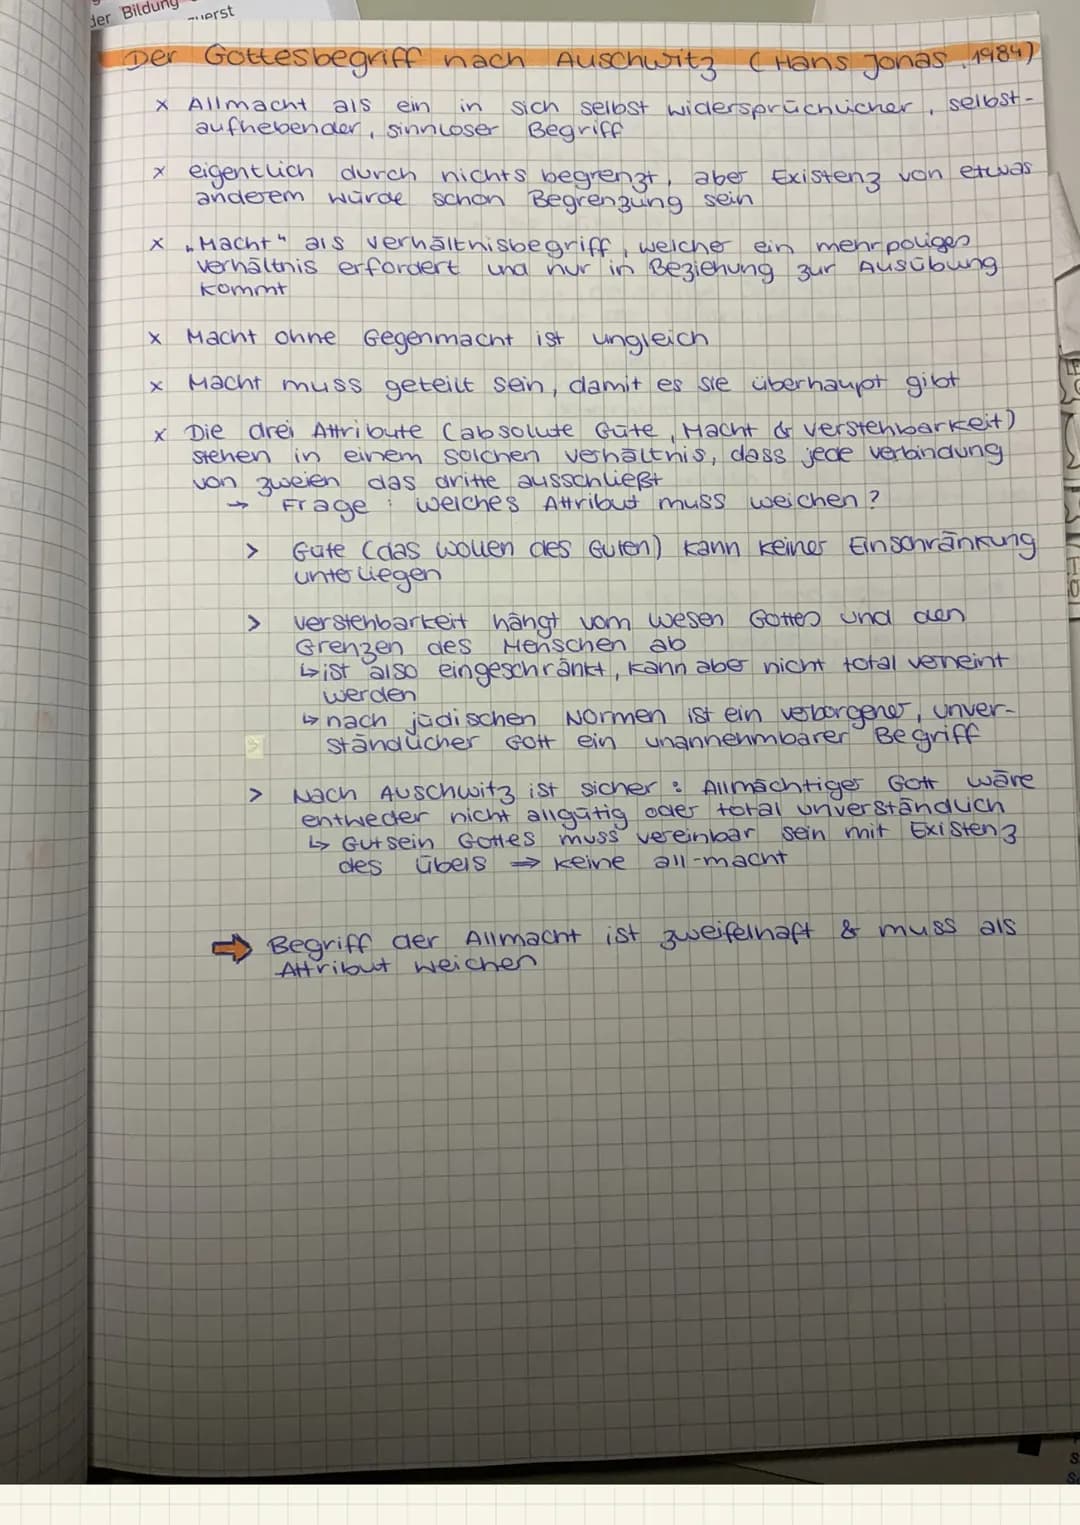 der Bildung
zuerst
Der Gottesbegriff nach Auschwitz (Hans Jonas, 1984)
x Allmacht als ein in sich selbst widersprüchlicher, selbst-
aufhebender, sinnloser Begriff
x eigentlich durch nichts begrenzt, aber Existenz von etwas
anderem würde schon Begrenzung sein
x „Macht" als Verhältnisbegriff, welcher ein mehrpoliges
Verhältnis erfordert und nur in Beziehung zur Ausübung
kommt
x Macht ohne Gegenmacht ist ungleich
x Macht muss geteilt sein, damit es sie überhaupt gibt
x Die drei Attribute (absolute Güte, Macht & Verstehbarkeit)
stehen in einem solchen Verhältnis, dass jede Verbindung
von zweien das dritte ausschließt
→ Frage : welches Attribut muss weichen?
> Güte (das Wollen des Guten) kann keiner Einschränkung
unterliegen
> Verstehbarkeit hängt vom Wesen Gottes und den
Grenzen des Menschen ab
↳ ist also eingeschränkt, kann aber nicht total verneint
werden
↳ nach jüdischen Normen ist ein verborgener, unver-
ständlicher Gott ein unannehmbarer Begriff
> Nach Auschwitz ist sicher : Allmächtiger Gott wäre
entweder nicht allgütig oder total unverständlich
↳ Gutsein Gottes muss vereinbar sein mit Existenz
des Übels ⇒ keine all-macht
➡ Begriff der Allmacht ist zweifelhaft & muss als
Attribut weichen